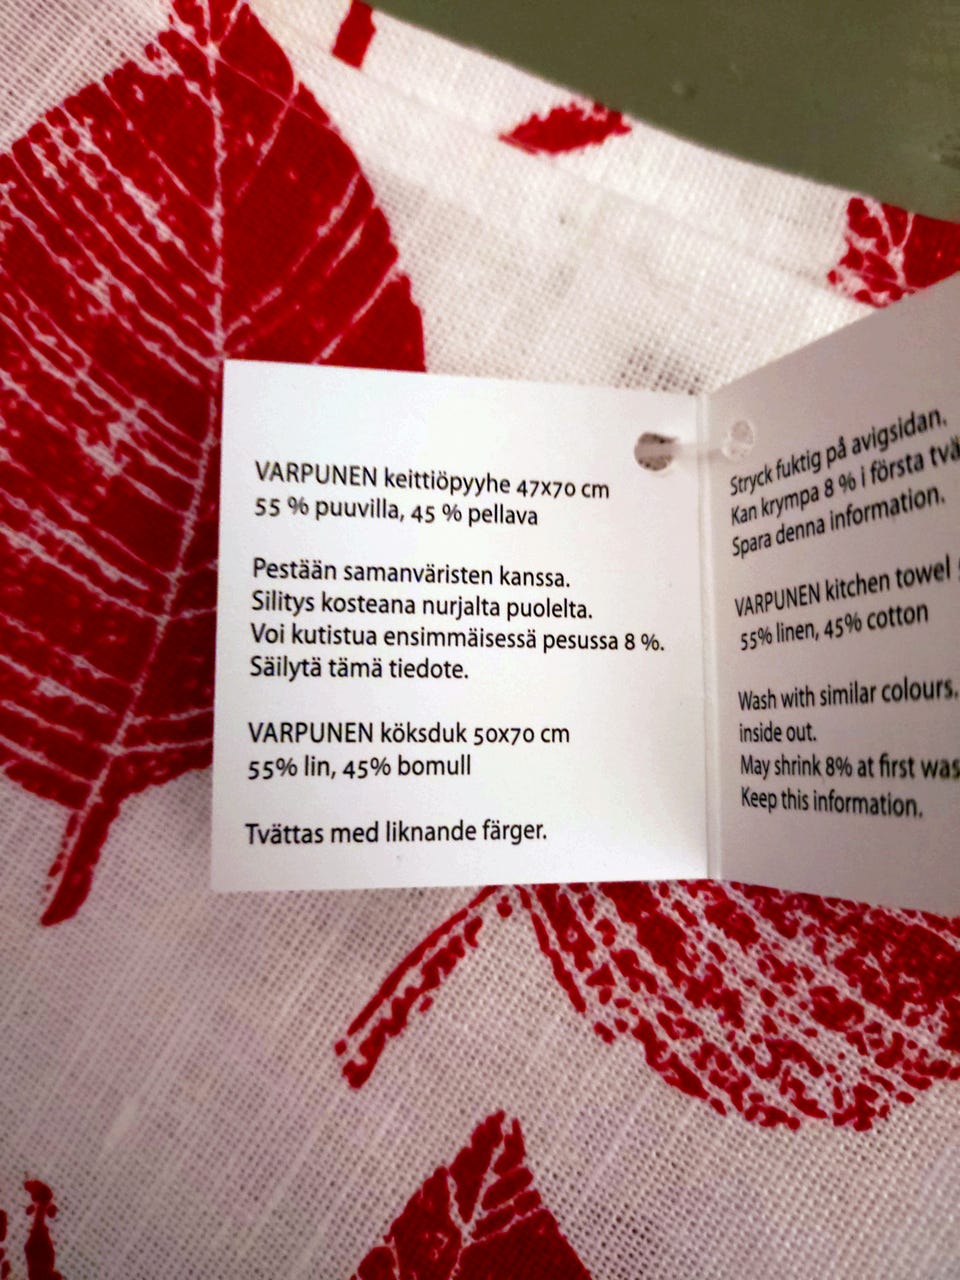 VARPUNEN keittiöpyyhe 47x70 cm
55 % puuvilla, 45 % pellava
Pestään samanväristen kanssa.
Silitys kosteana nurjalta puolelta.
Voi kutistua ensimmäisessä pesussa 8 %.
Säilytä tämä tiedote.
VARPUNEN köksduk 50x70 cm
55% lin, 45% bomull
Tvättas med liknande färger.
Stryck fuktig på avigsidan.
Kan krympa 8 % i första
Spara denna information.
VARPUNEN kitchen towel
55% linen, 45% cotton
Wash with similar colours.
inside out.
May shrink 8% at first
Keep this information.